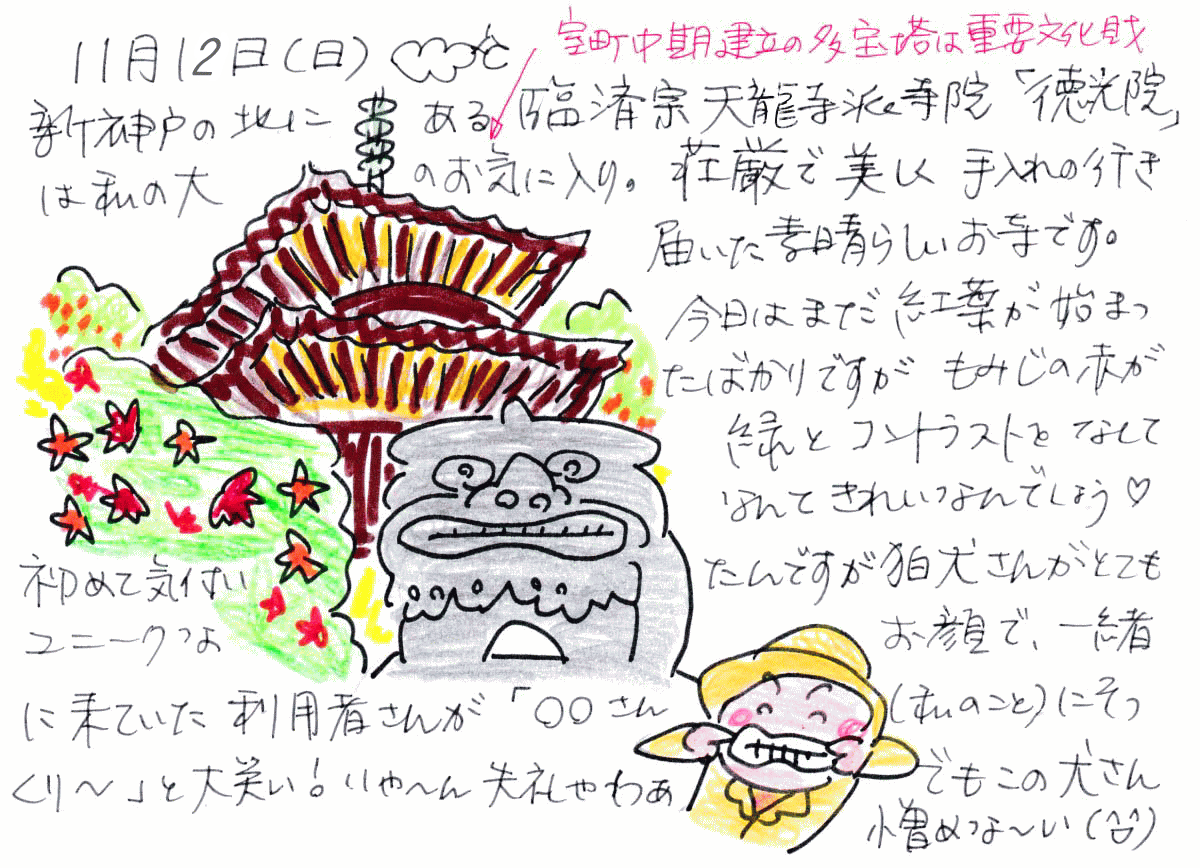 室町中期建立の多宝塔は重要文化財
11月12日(日)
新神戸の地にある臨済宗天龍寺派寺院「徳光院」
は私の大のお気に入り。荘厳で美しく手入れの行き
届いた素晴らしいお寺です。
今日はまだ紅葉が始まっ
たばかりですがもみじの赤が
緑とコントラストをなして
なんてきれいなんでしょう♡
初めて気付いたんですが狛犬さんがとても
ユニークなお顔で、一緒
に来ていた利用者さんが「〇〇さん(私のこと)にそっ
くり〜」と大笑い!いや〜ん失礼やわぁ でもこの犬さん
憎めな〜い(^^)